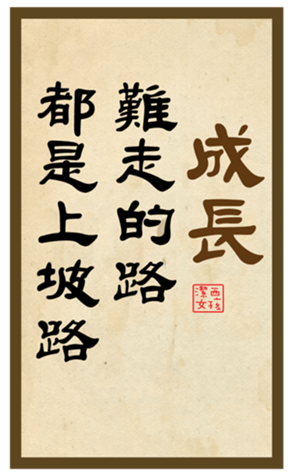 成長
潔西
女孩
難走的路
都是上坡路